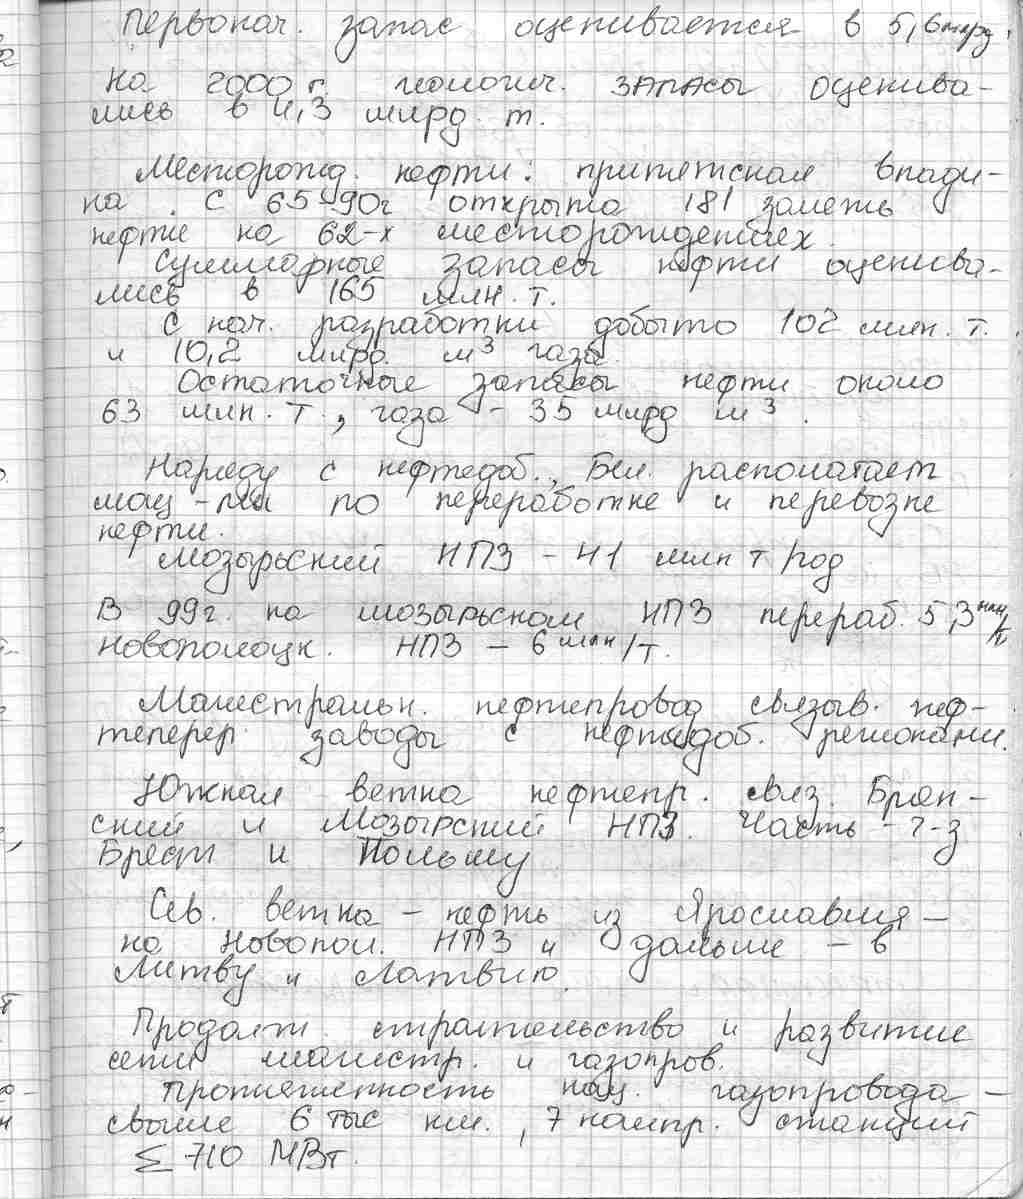 Первонач. запас оценивается в 5,6 млрд.
На 2000 г. геологич. запасы оценива-
лись в 4,3 млрд. т.
Месторожд. нефти: припятская впади-
на. С 65-90г открыто 181 залежь
нефти на 62-х месторождениях.
Суммарные запасы нефти оценива-
лись в 165 млн. т.
С нач. разработки добыто 102 млн. т.
и 10,2 млрд. м³ газа.
Остаточные запасы нефти около
63 млн. т, газа - 35 млрд м³.
Наряду с нефтедоб., Бел. располагает
мощ-ми по переработке и перевозке
нефти.
Мозырьский НПЗ - 41 млн т/год
В 99г. на мозырьском НПЗ перераб. 5,3 млн/т
Новополоцк. НПЗ - 6 млн/т.
Магистральн. нефтепровод связыв. неф-
теперер. заводы с нефтедоб. регионами.
Южная ветка нефтепр. связ. Брян-
ский и Мозырский НПЗ. Часть - ч-з
Брест и Польшу
Сев. ветка - нефть из Ярославля -
на Новопол. НПЗ и дальше - в
Литву и Латвию.
Продолж. строительство и развитие
сети магистр. и газопров.
Протяженность нац. газопровода -
свыше 6 тыс км., 7 компр. станций
Σ 710 МВт.